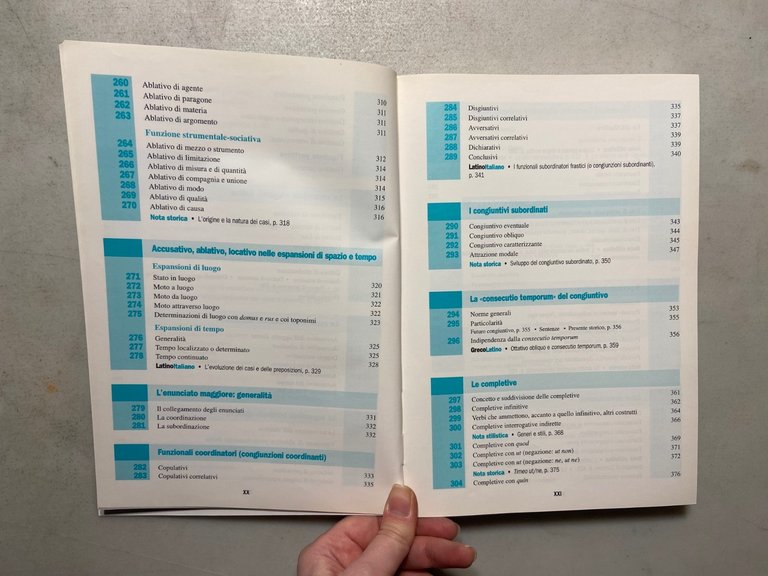 260 Ablativo di agente 310
261 Ablativo di paragone 311
262 Ablativo di materia 311
263 Ablativo di argomento 311
Funzione strumentale-sociativa
264 Ablativo di mezzo o strumento 312
265 Ablativo di limitazione 314
266 Ablativo di misura e di quantità 314
267 Ablativo di compagnia e unione 314
268 Ablativo di modo 315
269 Ablativo di qualità 316
270 Ablativo di causa 316
Nota storica • L'origine e la natura dei casi, p. 318
Accusativo, ablativo, locativo nelle espansioni di spazio e tempo
Espansioni di luogo
271 Stato in luogo 320
272 Moto a luogo 321
273 Moto da luogo 322
274 Moto attraverso luogo 322
275 Determinazioni di luogo con domus e rus e coi toponimi 323
Espansioni di tempo
276 Generalità 325
277 Tempo localizzato o determinato 325
278 Tempo continuato 328
LatinoItaliano • L'evoluzione dei casi e delle preposizioni, p. 329
L'enunciato maggiore: generalità
279 Il collegamento degli enunciati 331
280 La coordinazione 332
281 La subordinazione 332
Funzionali coordinatori (congiunzioni coordinanti)
282 Copulativi 333
283 Copulativi correlativi 335
XX
284 Disgiuntivi 335
285 Disgiuntivi correlativi 337
286 Avversativi 337
287 Avversativi correlativi 339
288 Dichiarativi 339
289 Conclusivi 340
LatinoItaliano • I funzionali subordinatori frastici (o congiunzioni subordinanti),
p. 341
I congiuntivi subordinati
290 Congiuntivo eventuale 343
291 Congiuntivo obliquo 344
292 Congiuntivo caratterizzante 345
293 Attrazione modale 347
Nota storica • Sviluppo del congiuntivo subordinato, p. 350
La «consecutio temporum» del congiuntivo
294 Norme generali 353
295 Particolarità 355
Futuro congiuntivo, p. 355 • Sentenze • Presente storico, p. 356
296 Indipendenza dalla consecutio temporum 356
GrecoLatino • Ottativo obliquo e consecutio temporum, p. 359
Le completive
297 Concetto e suddivisione delle completive 361
298 Completive infinitive 362
299 Verbi che ammettono, accanto a quello infinitivo, altri costrutti 364
300 Completive interrogative indirette 366
Nota stilistica • Generi e stili, p. 368
301 Completive con quod 369
302 Completive con ut (negazione: ut non) 371
303 Completive con ut (negazione: ne, ut ne) 372
Nota storica • Timeo ut/ne, p. 375
304 Completive con quin 376
XXI